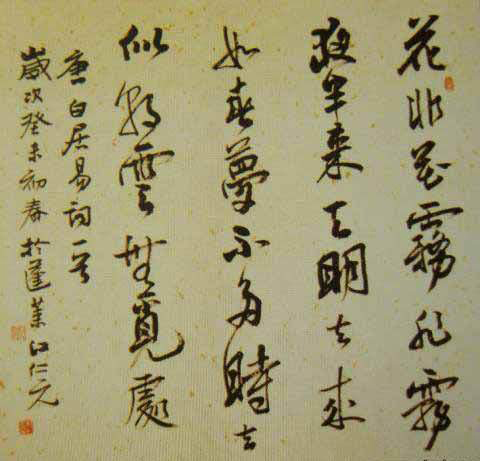 花非花霧非霧
夜半来天明去来
如春夢不多時去
似朝雲無覓處
唐白居易詞一首
歲次癸未初春於蓬萊江仁元